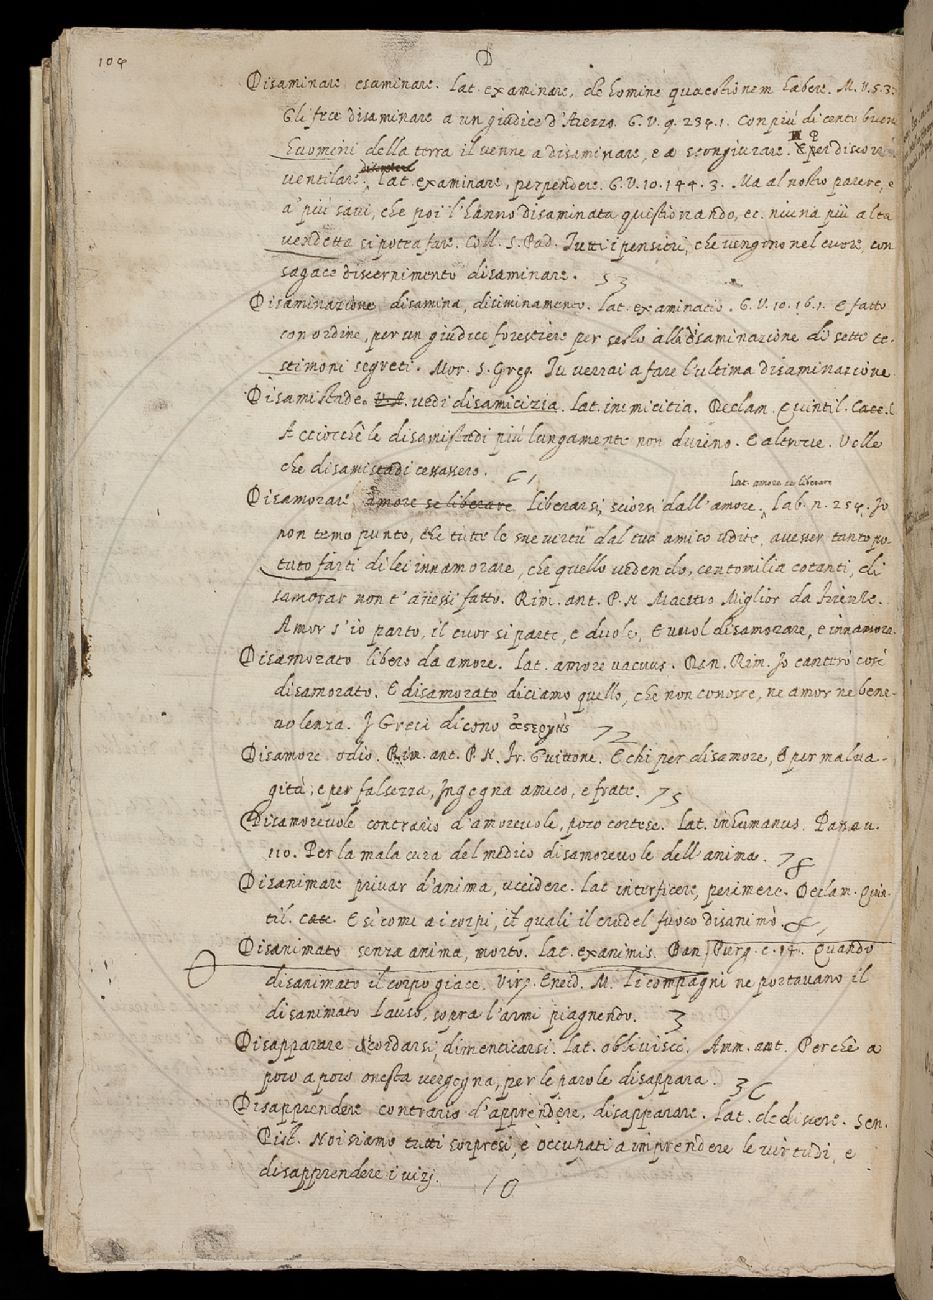 104
D
Disaminare esaminare. Lat. examinare, de homine quaestionem habere. M. V. 5. 3.
Gli fece disaminare a un giudice d'Arezzo. G. V. 9. 234. 1. Con più di cento buoni
huomini della terra il venne a disaminare, e a scongiurare. E per discorr
ventilare, Lat. examinare, perpendere. G. V. 10. 144. 3. Ma al nostro parere, e
a' più savi, che poi l'hanno disaminata quistionando, ec. niuna più alta
vendetta si potea fare. Coll. S. Pad. Tutti i pensieri, che vengono nel cuore, con
sagace discernimento disaminare. 53
Disaminazione disamina, disiminamento. Lat. examinatio. G. V. 10. 16. 1. E fatto
con ordine, per un giudice forestiere per seslo alla disaminazione di sette te-
stimoni segreti. Mor. S. Greg. Tu verrai a fare l'ultima disaminazione.
Disamistade. V. A. vedi disamicizia. Lat. inimicitia. Declam. Quintil. Cacc. C.
Acciocchè le disamistadi più lungamente non durino. E altrove. Volle
che disamistadi cessassero. 61
Lat. amore se liberare
Disamorare amore se liberare Liberarsi, sciorsi dall'amore. Lab. n. 254. Io
non temo punto, che tutte le sue virtù dal tuo amico udite, avesser tanto po-
tuto farti di lei innamorare, che quello vedendo, centomilia cotanti, di
samorar non t'avessi fatto. Rim. ant. P. N. Maestro Miglior da Firenze.
Amor s'io parto, il cuor si parte, e duole, E vuol disamorare, e innamora.
Disamorato libero da amore. Lat. amore vacuus. Dan. Rim. Io canterò così
disamorato. E disamorato diciamo quello, che non conosce, ne amor ne bene-
volenza. I Greci dicono ἄστοργὴς 72
Disamore odio. Rim. ant. P. N. Fr. Guittone. E chi per disamore, E per malva-
gità, e per falsezza, Ingegna amico, e frate. 75
Disamorevole contrario d'amorevole, poco cortese. Lat. inhumanus. Passav.
110. Per la mala cura del medico disamorevole dell'anima. 78
Disanimare privar d'anima, uccidere. Lat. interficere, perimere. Declam. Quin-
til. Cacc. E sì come a i corpi, i quali il crudel fuoco disanimò.
Disanimato senza anima, morto. Lat. exanimis. Dan. Purg. c. 14. Quando
disanimato il corpo giace. Virg. Eneid. M. Li compagni ne portavano il
disanimato Lauso, sopra l'armi piagnendo. 3
Disapparare scordarsi, dimenticarsi. Lat. oblivisci. Amm. ant. Perchè a
poco a poco onesta vergogna, per le parole disappara. 36
Disapprendere contrario d'apprendere, disapparare. Lat. dediscere. Sen.
Pist. Noi siamo tutti sorpresi, e occupati a imprendere le virtudi, e
disapprendere i vizj. 10